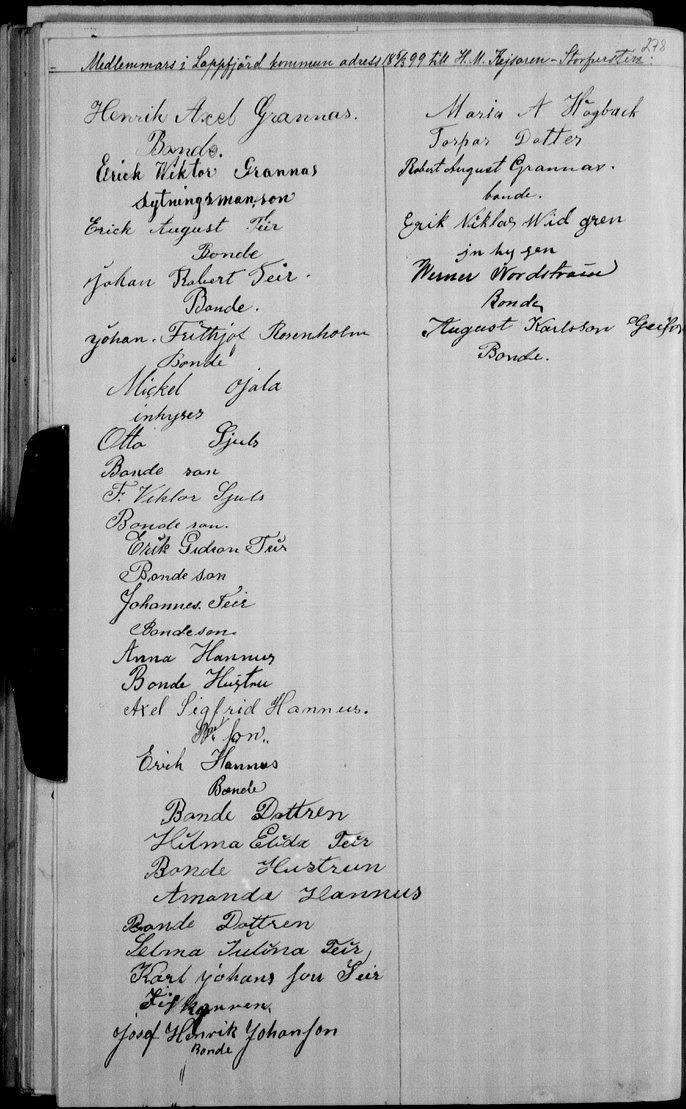 278
Medlemmars i Lappfjärd kommun adress 18 5/3 99 till H. M. Kejsaren-Storfursten:
Henrik Axel Grannas.
Bonde.
Erick Wiktor Grannas
sytningsmans son
Erick August Teir
Bonde
Johan Robert Teir.
Bonde.
Johan. Frithjof Rosenholm
Bonde
Mickel Ojala
inhyses
Otto Sjuls
Bonde son
F. Viktor Sjuls
Bonde son.
Erik Gideon Teir
Bonde son
Johannes. Teir
Bondeson.
Anna Hannus
Bonde Hustru
Axel Sigfrid Hannus.
son.
Erich Hannus
Bonde
Bonde Dottren
Hilma Elida Teir
Bonde Hustrun
Amanda Hannus
Bonde Dottren
Selma Julina Teir
Karl Johans son Teir
Josef Henrik Johanson
Bonde
Maria A Högback
Torpar Dotter
Robert August Grannas.
bonde.
Erik Niklas Widgren
in hy sen
Werner Nordström
Bonde
August Karlsson
Bonde.